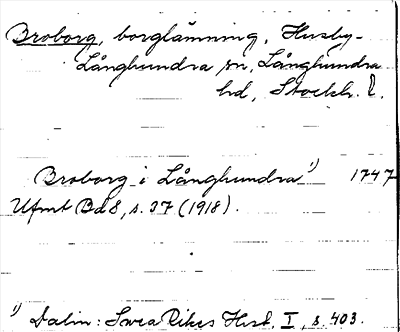 Broborg, borglämning, Husby-
Långhundra sn, Långhundra
hd, Stockh. l.
Broborg i Långhundra¹⁾ 1747
Ufmt Bd 8, s. 37 (1918).
¹⁾ Dalin: Svea Rikes Hist. I, s. 403.